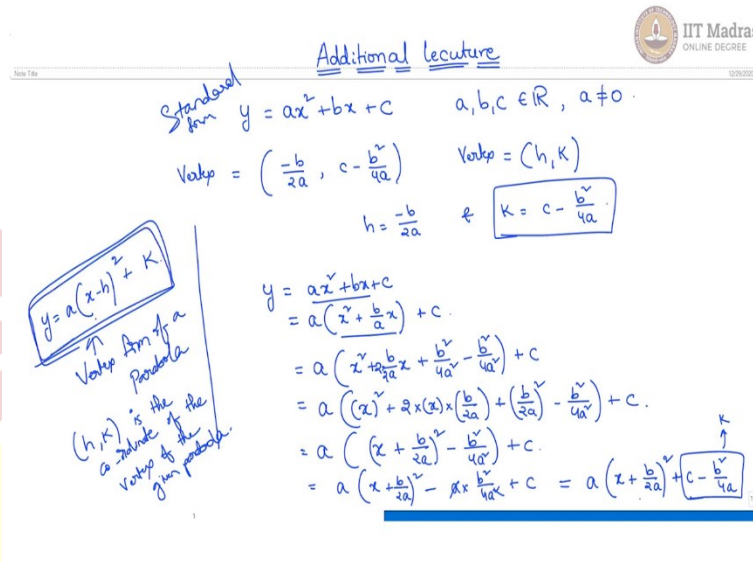 IIT Madras
ONLINE DEGREE
Additional lecuture
Note Title
12/29/2020
Standard form y = ax² + bx + c a, b, c ∈ ℝ, a ≠ 0.
Vertex = (-b/2a, c - b²/4a) Vertex = (h, K)
h = -b/2a & K = c - b²/4a
y = a(x-h)² + K
Vertex form of a parabola
(h, K) is the co-ordinate of the vertex of the given parabola.
y = ax² + bx + c
= a(x² + b/a x) + c.
= a(x² + 2b/2a x + b²/4a² - b²/4a²) + c
= a((x)² + 2×(x)×(b/2a) + (b/2a)² - b²/4a²) + c.
= a((x + b/2a)² - b²/4a²) + c.
K
= a(x + b/2a)² - a× b²/4a² + c = a(x + b/2a)² + c - b²/4a
1